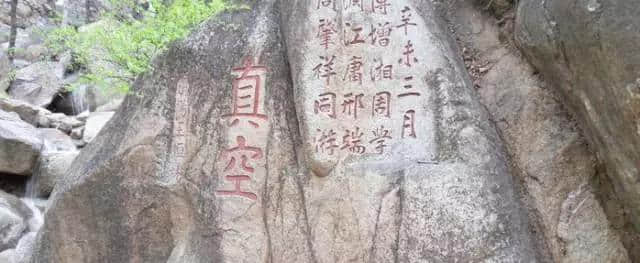 辛未三月
傅增湘周學
淵江庸邢端
周肇祥同游
真空